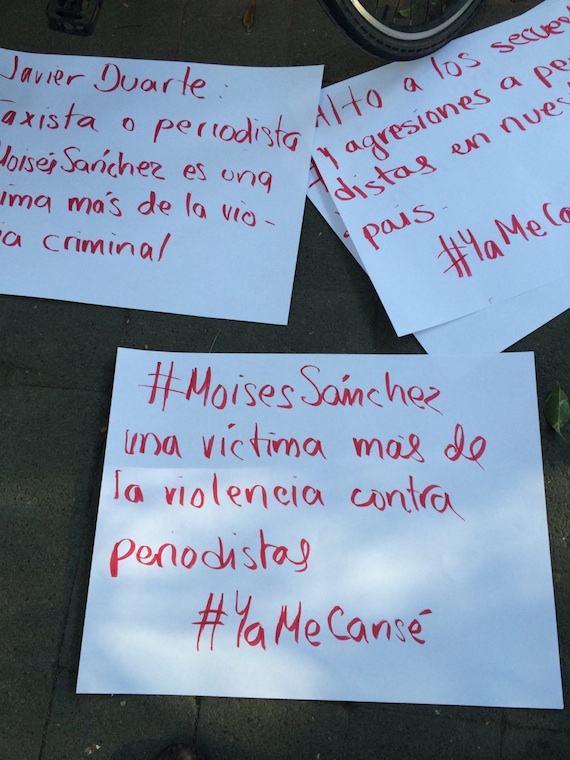 Javier Duarte:
axista o periodista
Moisés Sánchez es una
ima más de la vio-
ia criminal
Alto a los
y agresiones a pe
distas en nues
país.
#YaMeCa
#MoisesSánchez
una víctima más de
la violencia contra
periodistas
#YaMeCansé